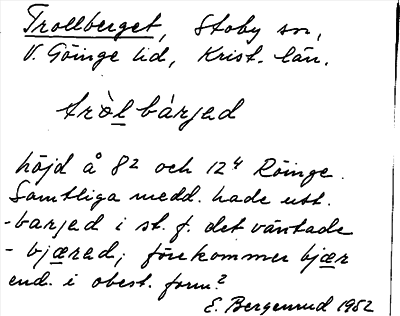 Trollberget, Stoby sn,
V. Göinge hd, Krist. län.
tròl bárjad
höjd å 8² och 12⁴ Röinge.
Samtliga medd. hade utt.
-barjad i st. f. det väntade
-bjærad; förekommer bjær
end. i obest. form?
E. Bergenrud 1952